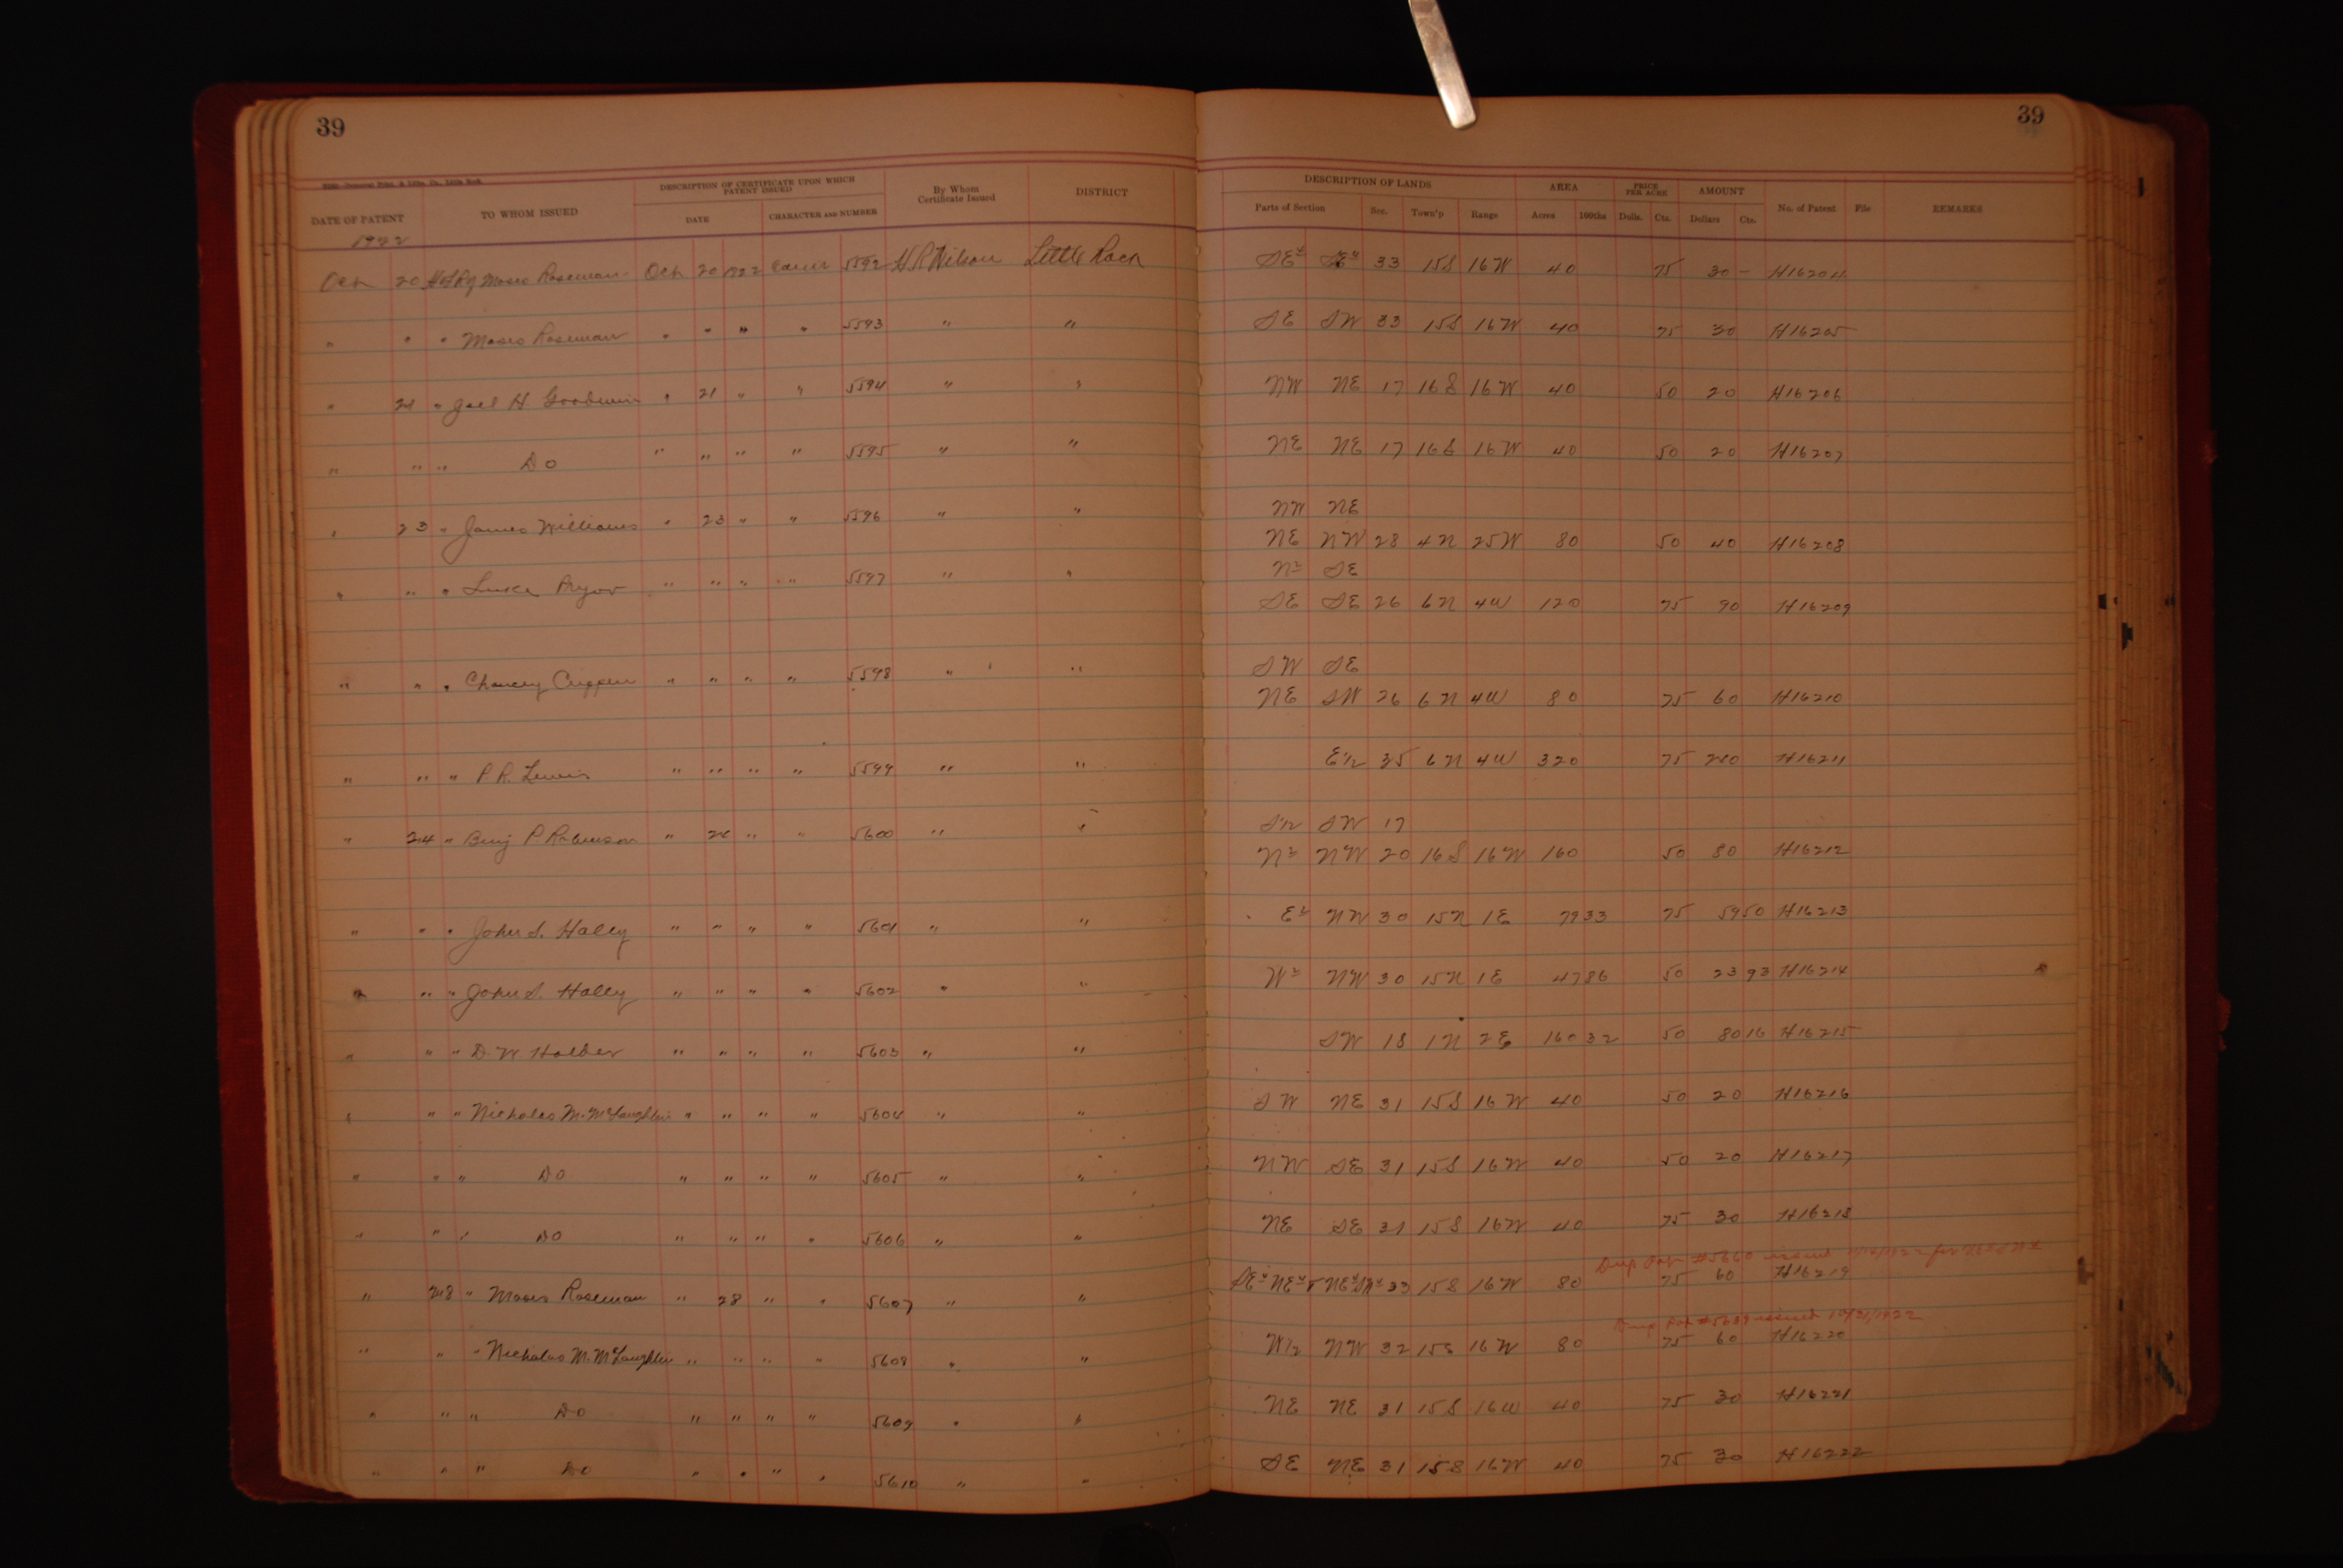 39
39
DESCRIPTION OF CERTIFICATE UPON WHICH PATENT ISSUED
By Whom Certificate Issued
DISTRICT
DESCRIPTION OF LANDS
AREA
PRICE PER ACRE
AMOUNT
No. of Patent
File
REMARKS
DATE OF PATENT
TO WHOM ISSUED
DATE
CHARACTER AND NUMBER
Parts of Section
Sec.
Town'p
Range
Acres
100ths
Dolls.
Cts.
Dollars
Cts.
1922
Oct 20 Moses Roseman Oct 20 1922 5592 H R Wilson Little Rock SE 33 15S 16W 40 75 30 - H16204
" " " Moses Roseman " " " " 5593 " " SE SW 33 15S 16W 40 75 30 H16205
" 21 " Joel H Goodwin " 21 " " 5594 " " NW NE 17 16S 16W 40 50 20 H16206
" " " Do " " " " 5595 " " NE NE 17 16S 16W 40 50 20 H16207
NW NE
" 23 " James Williams " 23 " " 5596 " " NE NW 28 4N 25W 80 50 40 H16208
N½ SE
" " " Luke Pryor " " " " 5597 " " SE SE 26 6N 4W 120 75 90 H16209
SW SE
" " " Chancey Crippen " " " " 5598 " " NE SW 26 6N 4W 80 75 60 H16210
" " " P. R. Lewis " " " " 5599 " " E½ 35 6N 4W 320 75 240 H16211
S½ SW 17
" 24 " Benj P. Robinson " 24 " " 5600 " " N½ NW 20 16S 16W 160 50 80 H16212
" " " John S. Haley " " " " 5601 " " E½ NW 30 15N 1E 79 33 75 59 50 H16213
" " " John S. Haley " " " " 5602 " " W½ NW 30 15N 1E 47 86 50 23 93 H16214
" " " D. W. Holder " " " " 5603 " " SW 18 1N 2E 160 32 50 80 16 H16215
" " " Nicholas M. McLaughlin " " " " 5604 " " SW NE 31 15S 16W 40 50 20 H16216
" " " Do " " " " 5605 " " NW SE 31 15S 16W 40 50 20 H16217
" " " Do " " " " 5606 " " NE SE 31 15S 16W 40 75 30 H16218
Dup Pat #5660 issued for
" 28 " Moses Roseman " 28 " " 5607 " " SE¼ NE¼ & NE¼ 33 15S 16W 80 75 60 H16219
Dup Pat issued
" " " Nicholas M. McLaughlin " " " " 5608 " " W½ NW 32 15S 16W 80 75 60 H16220
" " " Do " " " " 5609 " " NE NE 31 15S 16W 40 75 30 H16221
" " " Do " " " " 5610 " " SE NE 31 15S 16W 40 75 30 H16222